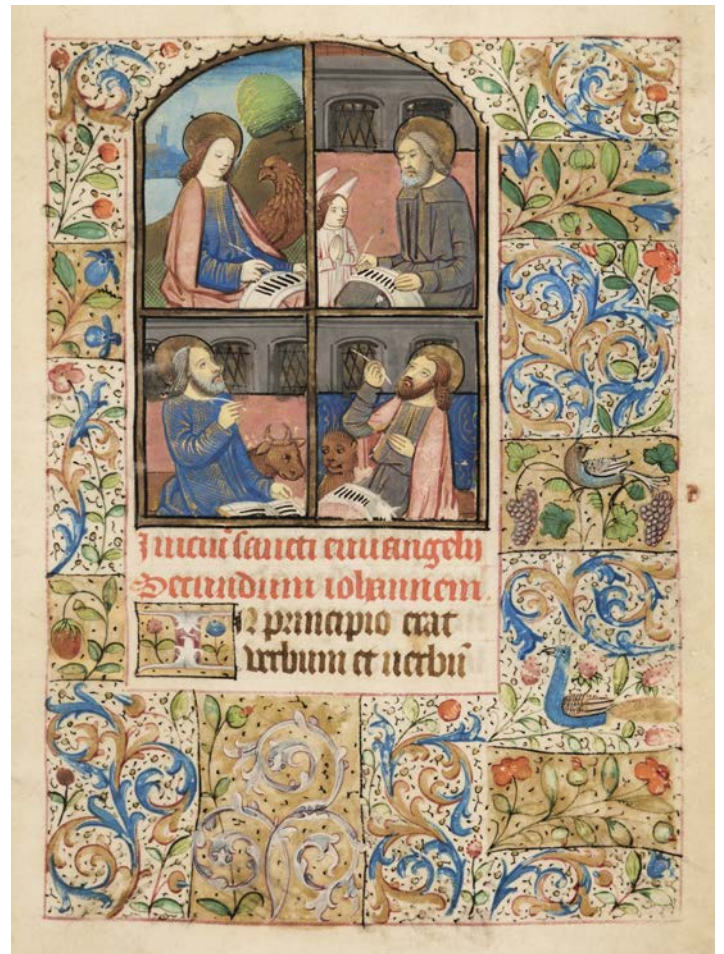 Iniciũ sancti euuangelij
Secundum iohannem.
In principio erat
verbum et uerbũ